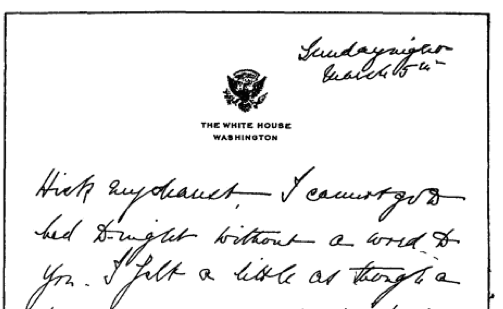 Sunday night
March 5th
THE WHITE HOUSE
WASHINGTON
Hick my dearest, I cannot go to
bed to-night without a word to
you. I felt a little as though a